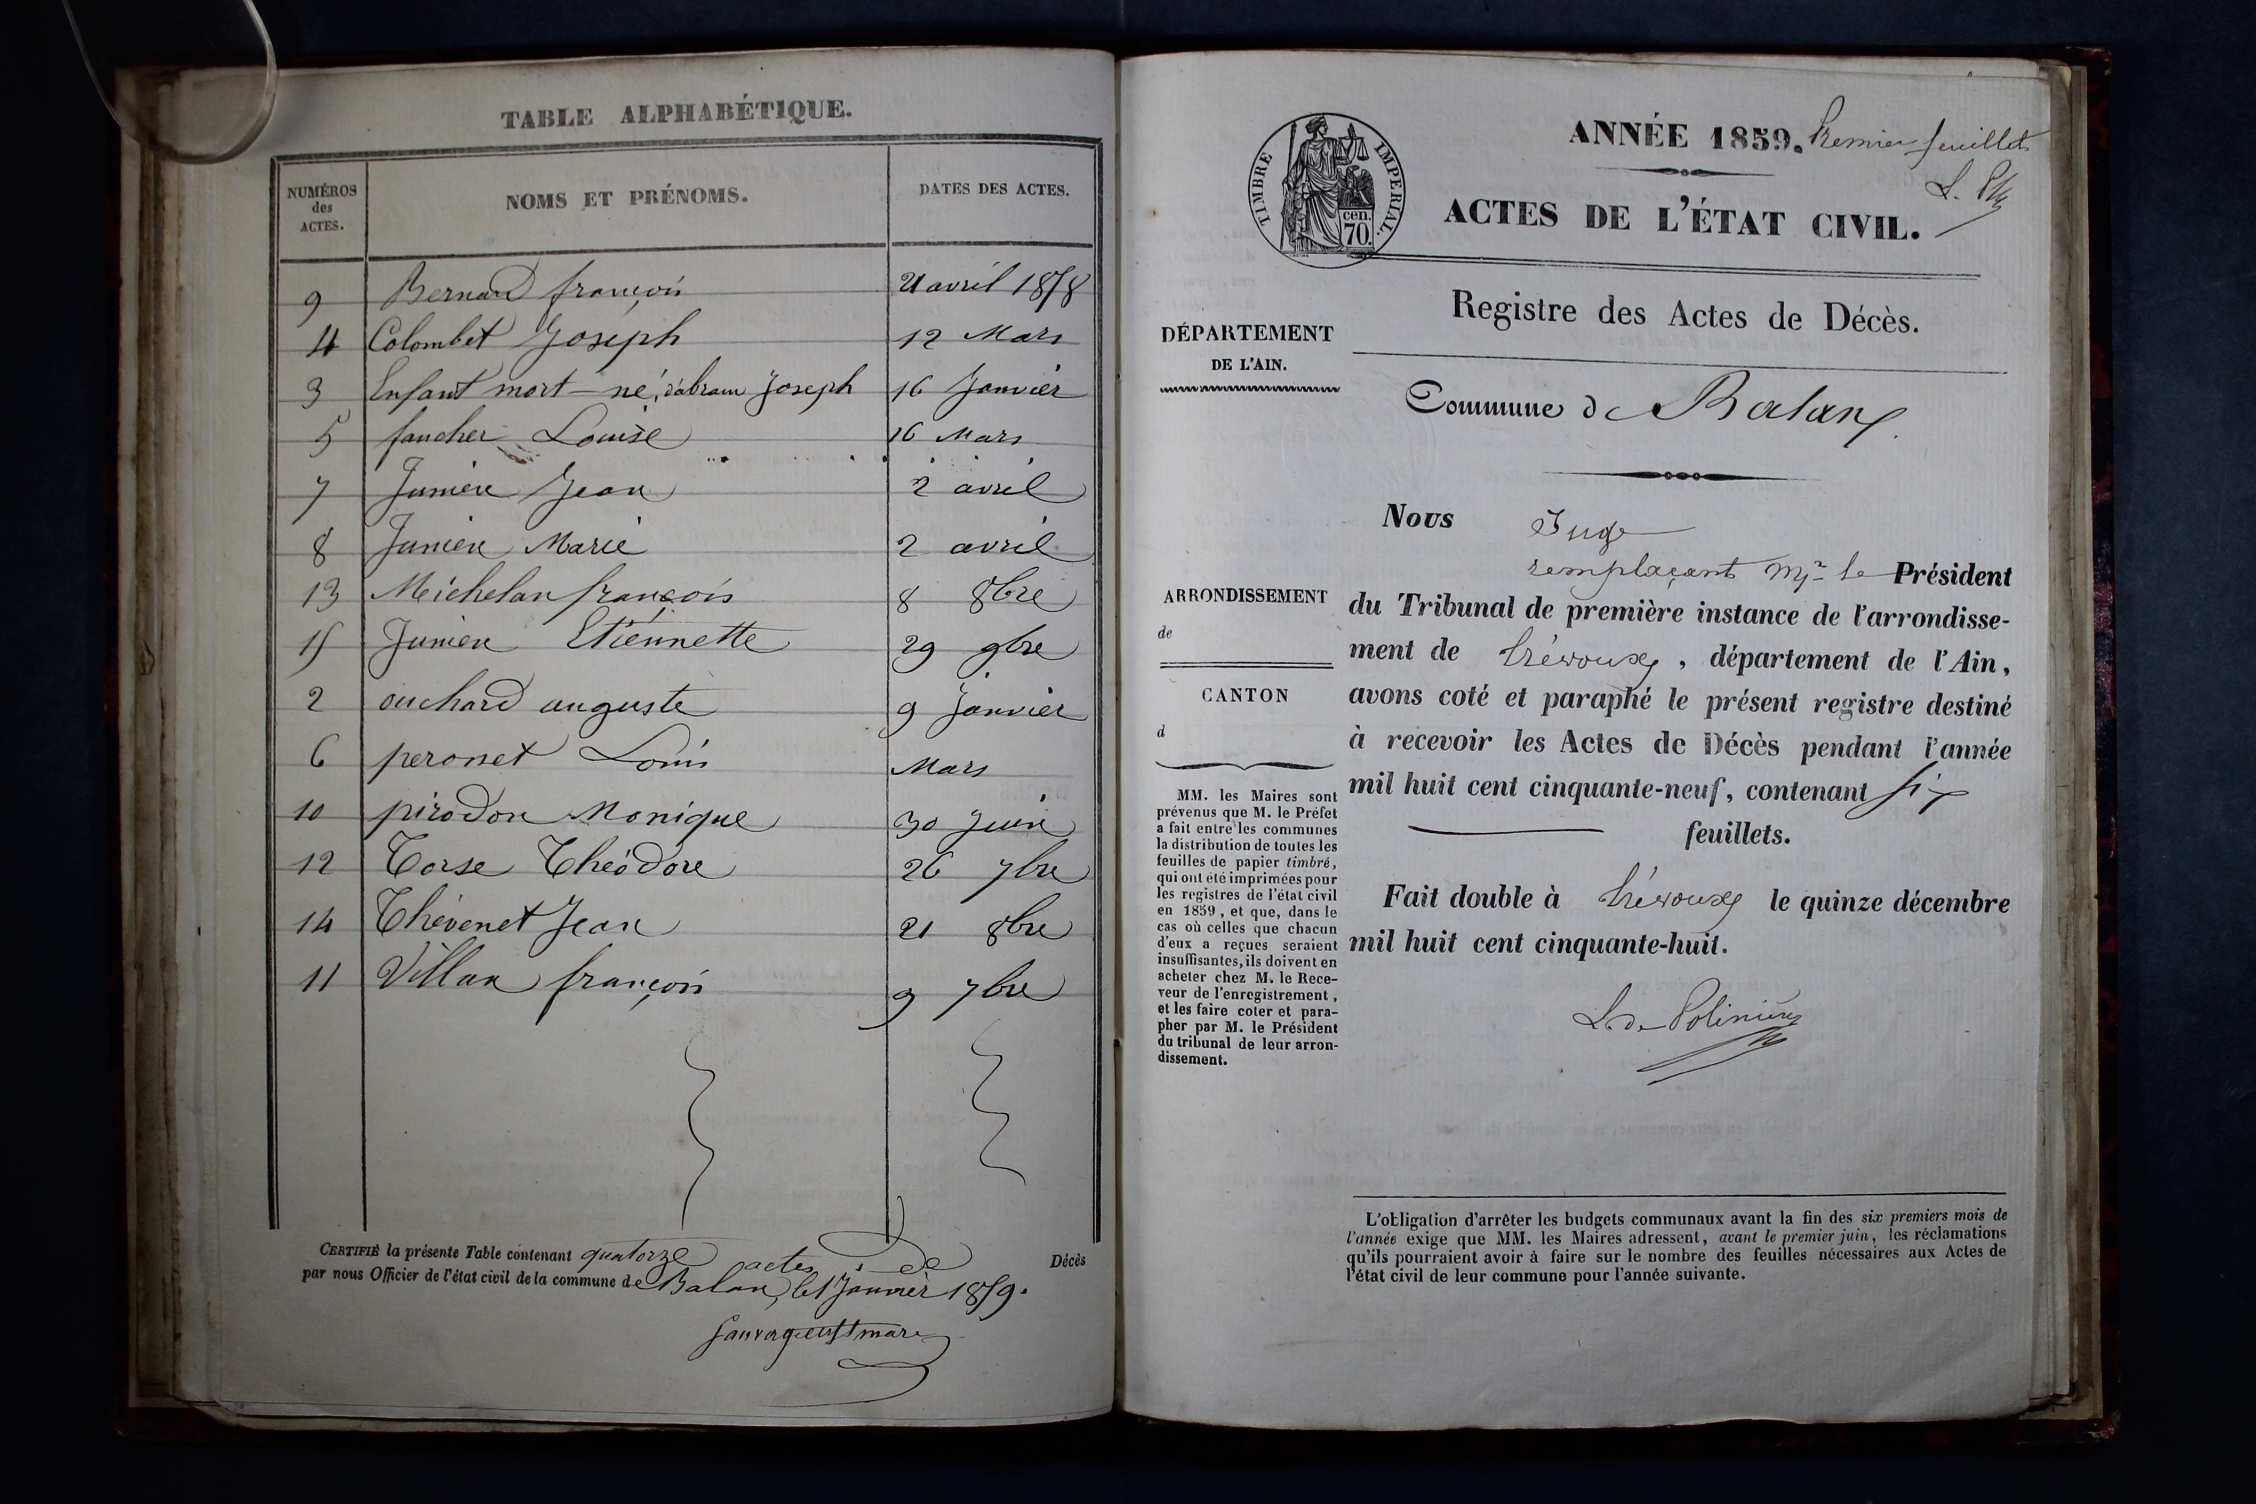 TABLE ALPHABÉTIQUE.
NUMÉROS
des
ACTES.
NOMS ET PRÉNOMS.
DATES DES ACTES.
9 Bernard françois 21 avril 1858
4 Colombet Joseph 12 Mars
3 Enfant mort-né, d'abram Joseph 16 Janvier
5 faucher Louise 16 Mars
7 Junière Jean 2 avril
8 Junière Marie 2 avril
13 Michelan françois 8 8bre
15 Junière Etiennette 29 9bre
2 ouchard auguste 9 Janvier
6 peronet Louis Mars
10 pirodon Monique 30 Juin
12 Torse Théodore 26 7bre
14 Thévenet Jean 21 8bre
11 Villan françois 9 7bre
CERTIFIÉ la présente Table contenant quatorze actes de Décès
par nous Officier de l'état civil de la commune de Balan, le 1 Janvier 1859.
ANNÉE 1859. Premier feuillet
ACTES DE L'ÉTAT CIVIL.
TIMBRE IMPERIAL.
cen.
70.
Registre des Actes de Décès.
DÉPARTEMENT
DE L'AIN.
Commune de Balan
ARRONDISSEMENT
de
CANTON
d
MM. les Maires sont
prévenus que M. le Préfet
a fait entre les communes
la distribution de toutes les
feuilles de papier timbré,
qui ont été imprimées pour
les registres de l'état civil
en 1859, et que, dans le
cas où celles que chacun
d'eux a reçues seraient
insuffisantes, ils doivent en
acheter chez M. le Rece-
veur de l'enregistrement,
et les faire coter et para-
pher par M. le Président
du tribunal de leur arron-
dissement.
Nous Juge
remplaçant Mr le Président
du Tribunal de première instance de l'arrondisse-
ment de Trévoux, département de l'Ain,
avons coté et paraphé le présent registre destiné
à recevoir les Actes de Décès pendant l'année
mil huit cent cinquante-neuf, contenant six
feuillets.
Fait double à Trévoux le quinze décembre
mil huit cent cinquante-huit.
L. de Polinière
L'obligation d'arrêter les budgets communaux avant la fin des six premiers mois de
l'année exige que MM. les Maires adressent, avant le premier juin, les réclamations
qu'ils pourraient avoir à faire sur le nombre des feuilles nécessaires aux Actes de
l'état civil de leur commune pour l'année suivante.